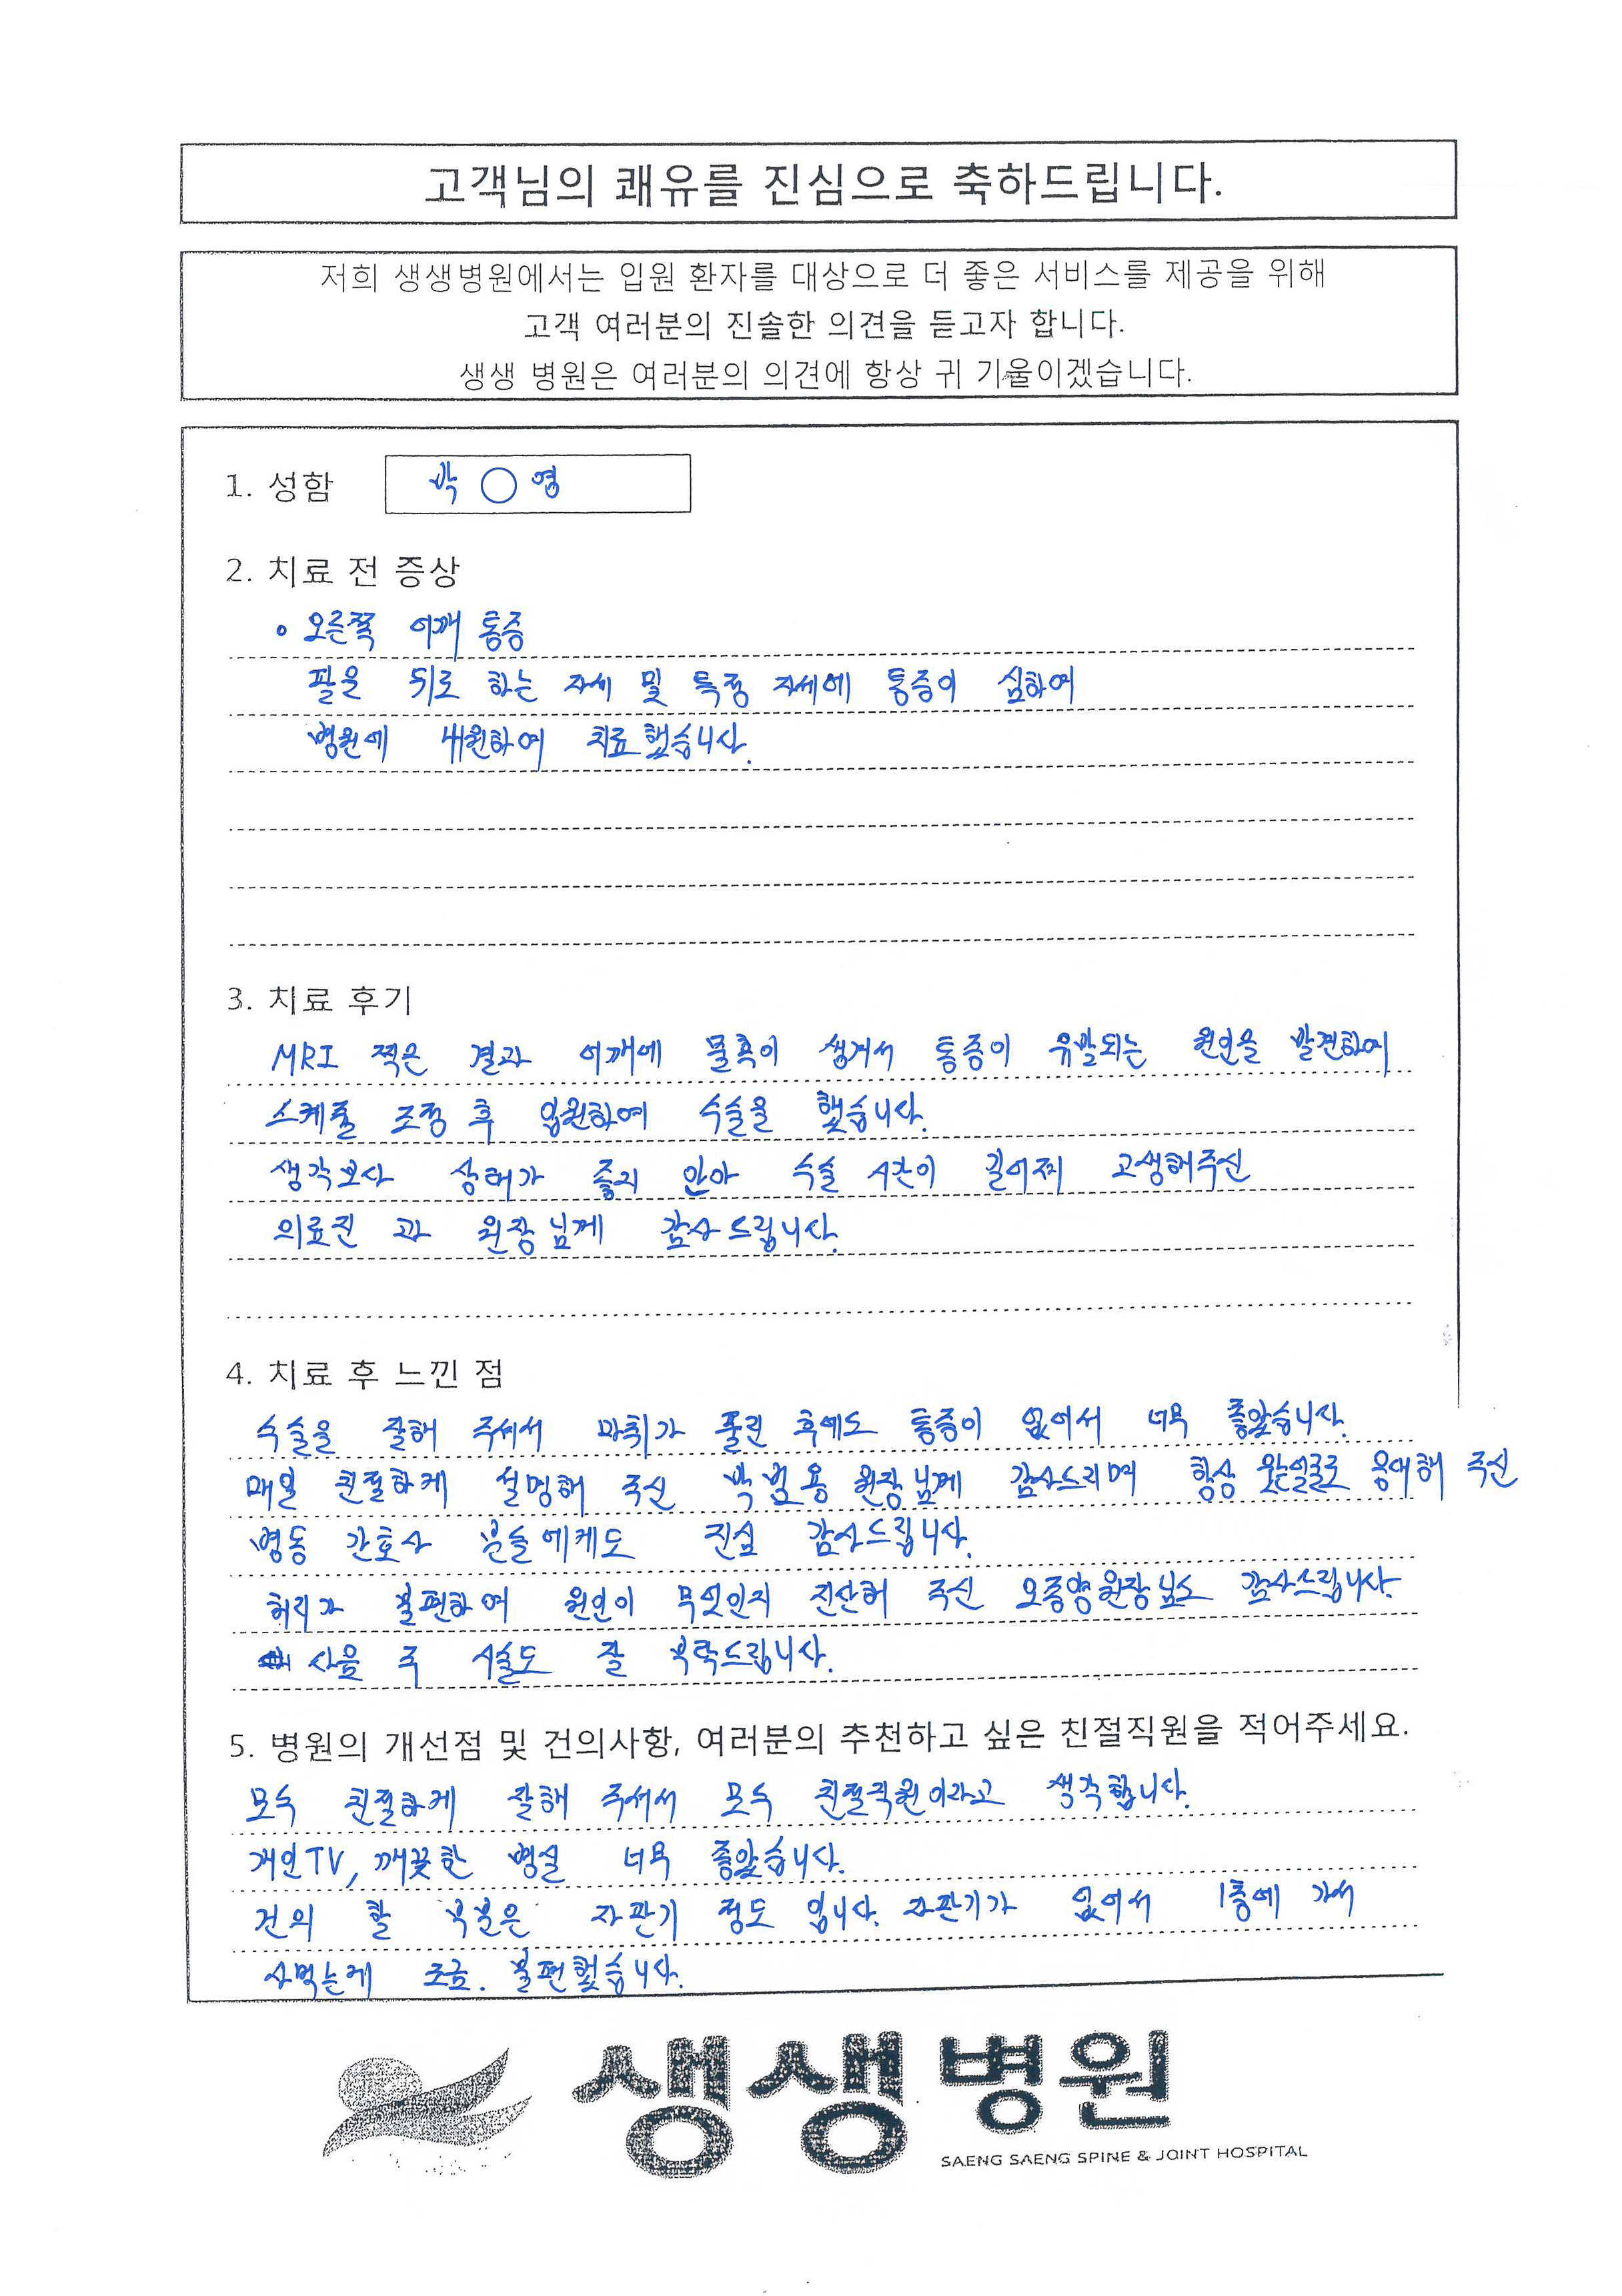 고객님의 쾌유를 진심으로 축하드립니다.
저희 생생병원에서는 입원 환자를 대상으로 더 좋은 서비스를 제공을 위해
고객 여러분의 진솔한 의견을 듣고자 합니다.
생생 병원은 여러분의 의견에 항상 귀 기울이겠습니다.
1. 성함 박 ○ 영
2. 치료 전 증상
• 오른쪽 어깨 통증
팔을 뒤로 하는 자세 및 특정 자세에 통증이 심하여
병원에 내원하여 치료했습니다.
3. 치료 후기
MRI 찍은 결과 어깨에 물혹이 생겨서 통증이 유발되는 원인을 발견하여
스케줄 조정 후 입원하여 수술을 했습니다.
생각보다 상태가 좋지 안아 수술 시간이 길어져 고생해주신
의료진 과 원장님께 감사드립니다.
4. 치료 후 느낀 점
수술을 잘해 주셔서 마취가 풀린 후에도 통증이 없어서 너무 좋았습니다.
매일 친절하게 설명해 주신 박범용 원장님께 감사드리며 항상 웃는얼굴로 응대해 주신
병동 간호사 분들에게도 진심 감사드립니다.
허리가 불편하여 원인이 무엇인지 진단해 주신 오종양원장님도 감사드립니다.
다음 주 시술도 잘 부탁드립니다.
5. 병원의 개선점 및 건의사항, 여러분의 추천하고 싶은 친절직원을 적어주세요.
모두 친절하게 잘해 주셔서 모두 친절직원이라고 생각합니다.
개인TV, 깨끗한 병실 너무 좋았습니다.
건의 할 부분은 자판기 정도 입니다. 자판기가 없어서 1층에 가서
사먹는게 조금. 불편했습니다.
생생병원
SAENG SAENG SPINE & JOINT HOSPITAL